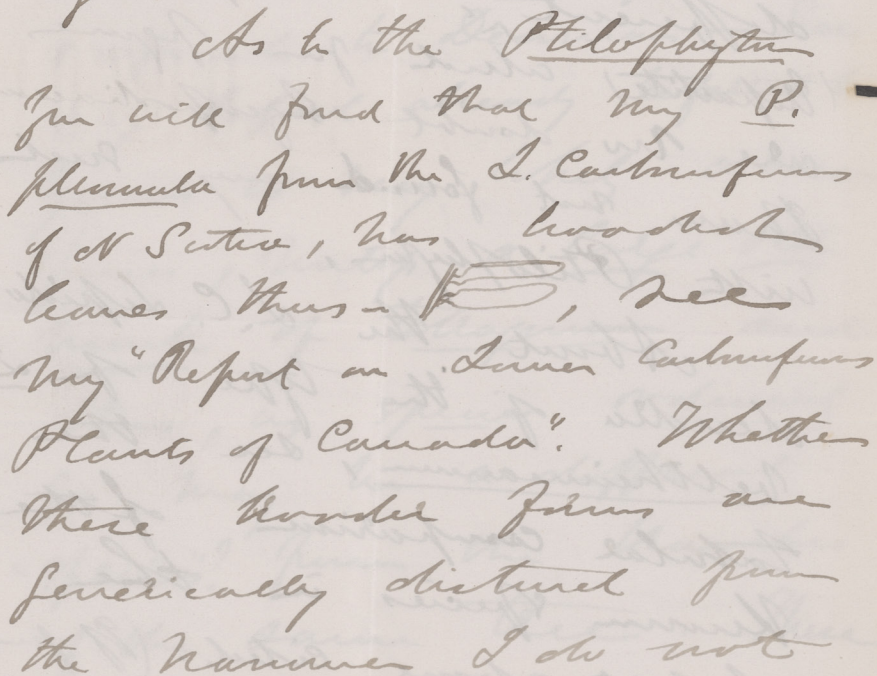 As to the Ptilophyton
you will find that my P.
plumula from the L. Carboniferous
of N Scotia, has broadish
leaves thus - , see
my "Report on Lower Carboniferous
Plants of Canada". Whether
these broader forms are
generically distinct from
the narrower I do not